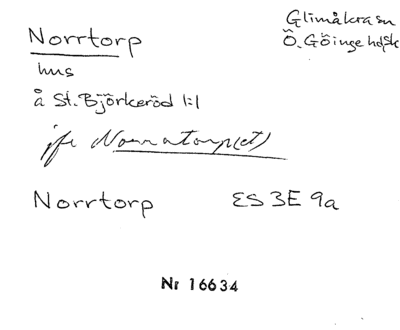 Norrtorp
Glimåkra sn
Ö. Göinge hd, Sk
hus
å St. Björkeröd 1:1
jfr Norratorp(et)
Norrtorp ES 3E 9a
Nr 16634